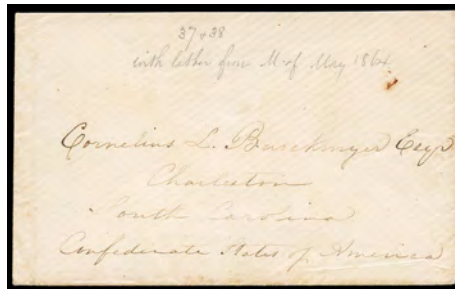 37 & 38
with letter from M of May 1864
Cornelius L. Burckmyer Esqr
Charleston
South Carolina
Confederate States of America